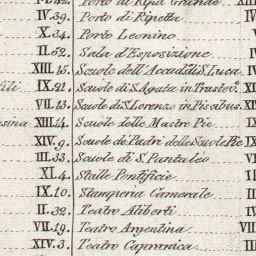 Porto di Ripa Grande XIII
IV.39. Porto di Ripetta IV
X.34. Porto Leonino
II.52. Sala d'Esposizione
XIII.15. Scuole dell'Accad. di S. Luca
IX.21. Scuole di S. Agata in Trastev.
VII.13. Scuole di S. Lorenzo in Piscibus
XIII.14. Scuole delle Maestre Pie
XIV.9. Scuole de' Padri delle Scuole Pie
III.33. Scuole di S. Pantaleo
XI.4. Stalle Pontificie
IX.10. Stamperia Camerale
II.32. Teatro Aliberti
VII.19. Teatro Argentina VIII
XIV.3. Teatro Capranica